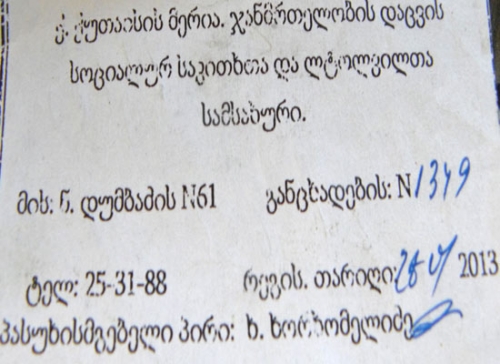 ქ. ქუთაისის მერია. ჯანმრთელობის დაცვის
სოციალურ საკითხთა და ლტოლვილთა
სამსახური.
მის: ნ. დუმბაძის N61 განცხადების: N1349
ტელ: 25-31-88 რეგის. თარიღი: 28 2013
პასუხისმგებელი პირი: ხ. ხორხომელიძე